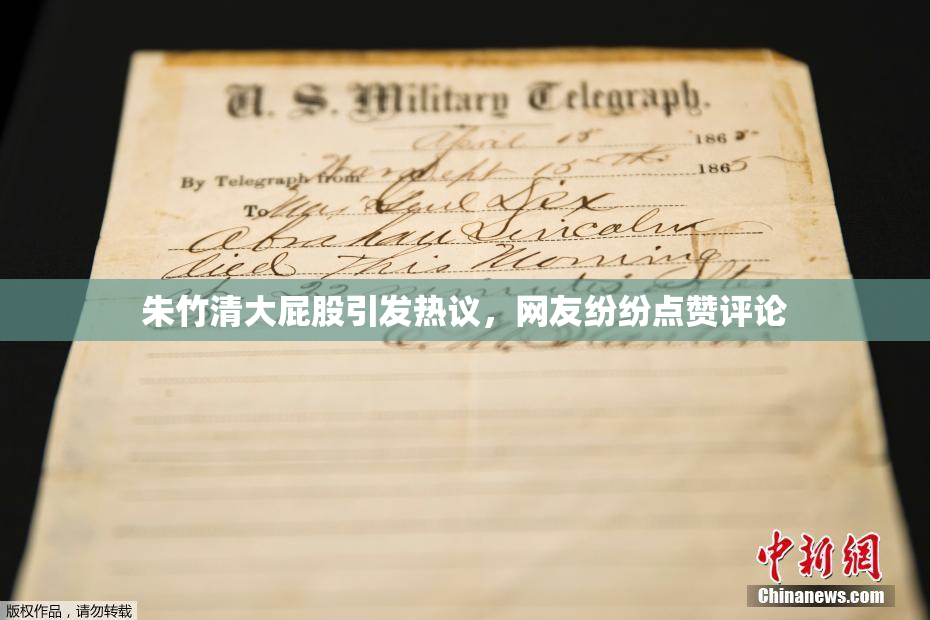 U. S. Military Telegraph.
April 15 1865
By Telegraph from War Dept 15th 1865
To Maj Genl Dix
Abraham Lincoln
died This Morning
at 22 minutes after
朱竹清大屁股引发热议，网友纷纷点赞评论
E. M. Stanton
中新网
Chinanews.com
版权作品，请勿转载